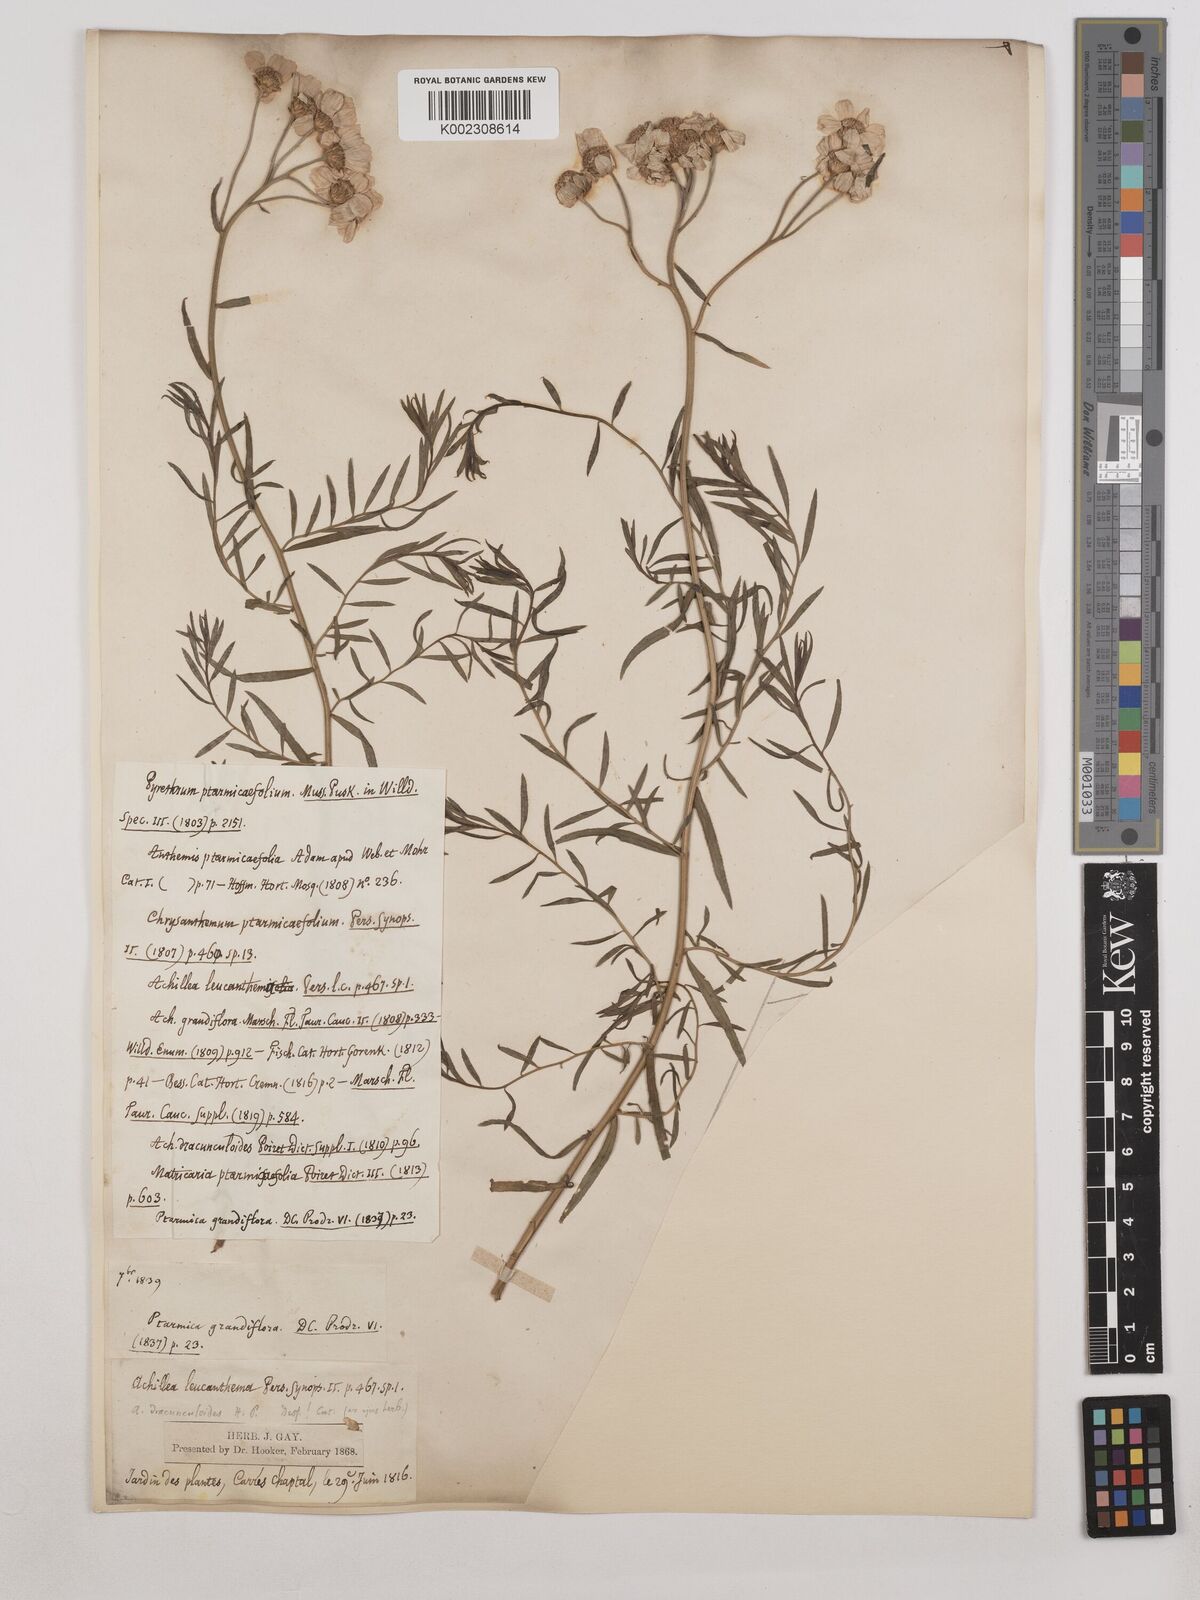 ROYAL BOTANIC GARDENS KEW
K002308614
Pyrethrum ptarmicaefolium. Muss. Pusk. in Willd.
Spec. III. (1803) p. 2151.
Anthemis ptarmicaefolia Adam apud Web. et Mohr
Cat. I. ( ) p. 71 — Hoffm. Hort. Mosq. (1808) No. 236.
Chrysanthemum ptarmicaefolium. Pers. Synops.
II. (1807) p. 460 sp. 13.
Achillea leucanthemifolia. Pers. l.c. p. 467. sp. 1.
Ach. grandiflora. Marsch. Fl. Taur. Cauc. II. (1808) p. 333 —
Willd. Enum. (1809) p. 912 — Fisch. Cat. Hort. Gorenk. (1812)
p. 41 — Bess. Cat. Hort. Cremn. (1816) p. 2 — Marsch. Fl.
Taur. Cauc. Suppl. (1819) p. 584.
Ach. dracunculoides Poiret Dict. Suppl. I. (1810) p. 96.
Matricaria ptarmicaefolia Poiret Dict. III. (1813)
p. 603.
Ptarmica grandiflora. DC. Prodr. VI. (1837) p. 23.
7br. 1839
Ptarmica grandiflora. DC. Prodr. VI.
(1837) p. 23.
Achillea leucanthema Pers. Synops. II. p. 467. sp. 1.
A. dracunculoides H. P. Desf! Cat. (ex ejus herb.)
HERB. J. GAY.
Presented by Dr. Hooker, February 1868.
Jardin des plantes, Carrés Chaptal, le 29e Juin 1816.
inches
Density
Don Williams
M001033
centimeters
Royal Botanic Gardens
Kew
copyright reserved
0 1 2 3 4 5 6 7 8 9 10
cm